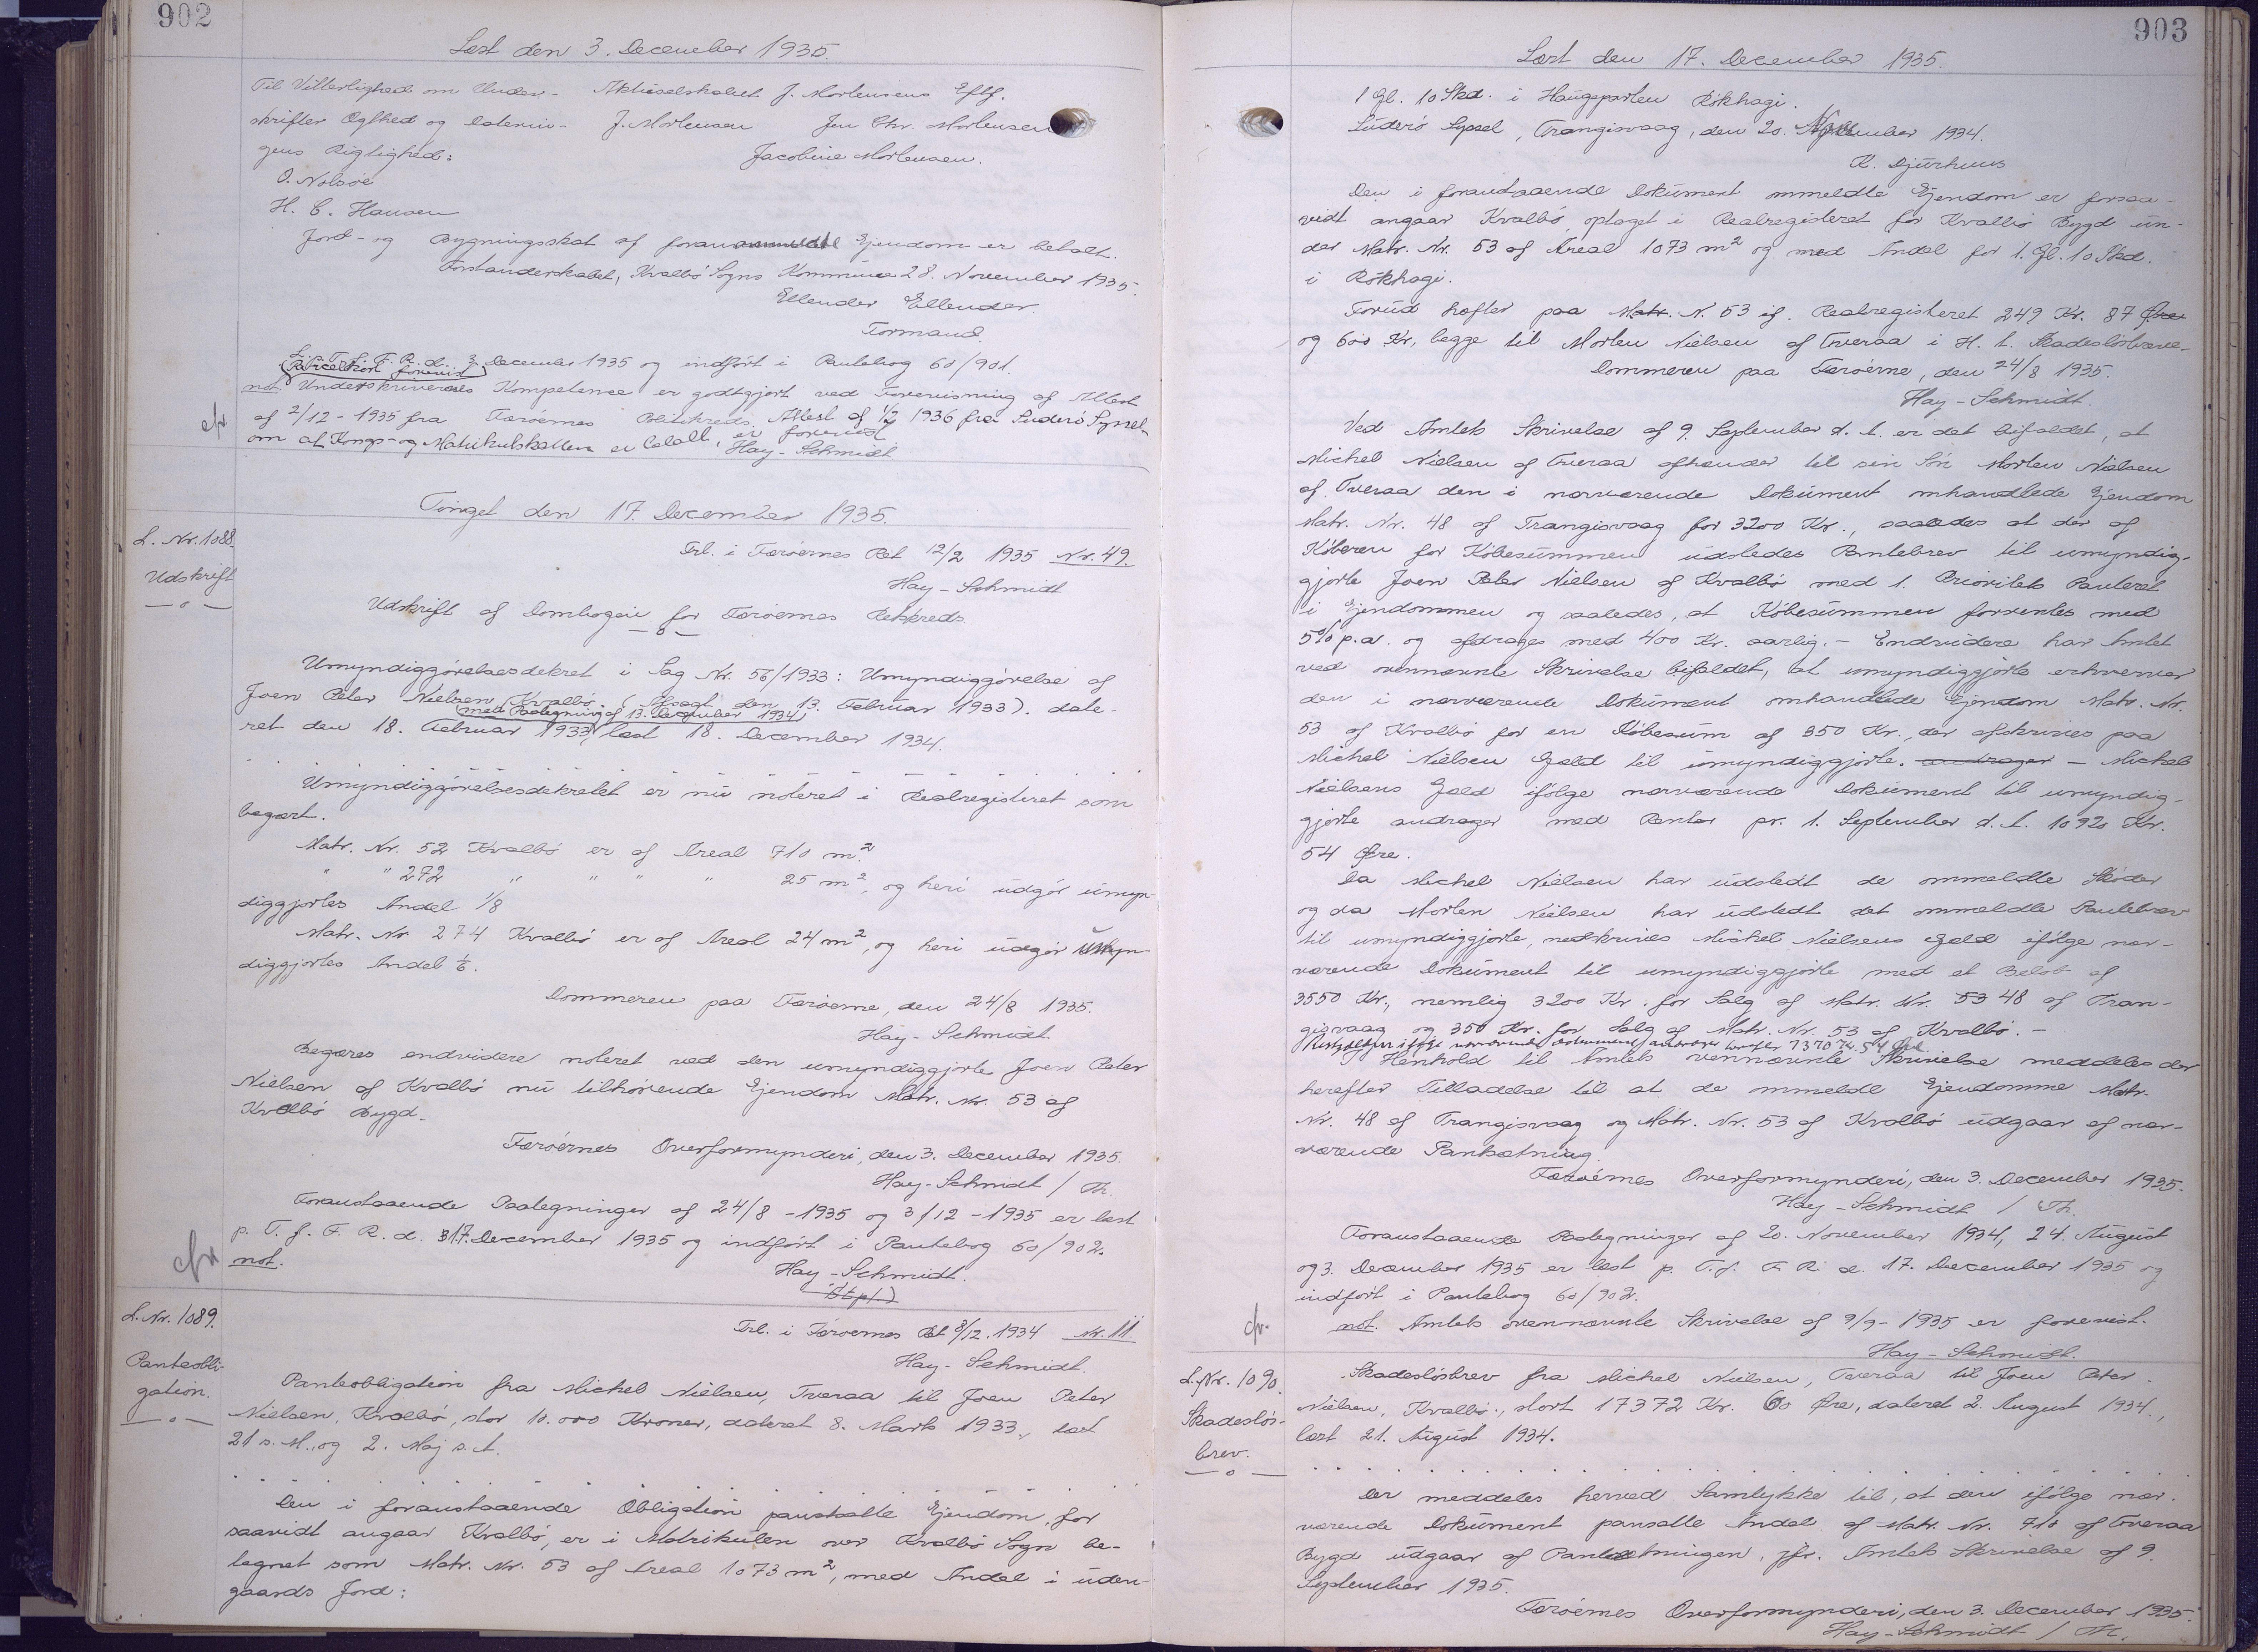 902
Læst den 3. December 1935.
Til Vitterlighed om Under- Aktieselskabet J. Mortensens Eftf.
skrifter Ægthed og Daterin- J. Mortensen Jen Chr. Mortensen
gens Rigtighed: Jacobine Mortensen.
O. Nolsøe
H. C. Hansen
Jord- og Bygningsskat af foranommeldte Ejendom er betalt.
Forstanderskabet, Kvalbö Sogns Kommune 28. November 1935.
Ellendur Ellendur.
Formand.
Læst p. T. f. F. R. d. 3. December 1935 og indført i Pantebog 60/901.
Parcelkort forevist
not. Underskrivernes Kompetence er godtgjort ved Forevisning af Attest
af 2/12 - 1935 fra Færöernes Politikreds. Attest af 1/2 1936 fra Suderö Syssel
cfr
om at Konge- og Matrikulskatten er betalt, er forevist
Hay-Schmidt
Tinget den 17. December 1935.
L. Nr. 1088.
Udskrift
Trl. i Færöernes Ret 12/2 1935 Nr. 49.
Hay-Schmidt
Udskrift af Dombogen for Færöernes Retskreds.
Umyndiggörelsesdekret i Sag Nr. 56/1933: Umyndiggörelse af
Joen Peter Nielsen, Kvalbö, (afsagt den 13. Februar 1933). date-
med Paategning af 13. December 1934
ret den 18. Februar 1933, læst 18. December 1934.
Umyndiggörelsesdekretet er nu noteret i Realregisteret som
begært.
Matr. Nr. 52 Kvalbö er af Areal 710 m².
" " 272 " " " " 25 m², og heri udgör umyn
diggjortes Andel 1/8
Matr. Nr 274 Kvalbö er af Areal 24 m², og heri udgör umyn-
diggjortes Andel 1/6.
Dommeren paa Færöerne, den 24/8 1935.
Hay-Schmidt.
Begæres endvidere noteret ved den umyndiggjorte Joen Peter
Nielsen af Kvalbö nu tilhörende Ejendom Matr. Nr. 53 af
Kvalbö Bygd.
Færöernes Overformynderi, den 3. December 1935.
Hay-Schmidt / Th.
Foranstaaende Paategninger af 24/8 - 1935 og 3/12 - 1935 er læst
p. T. f. F. R. d. 17. December 1935 og indført i Pantebog 60/902.
cfr
not.
Hay-Schmidt.
(Stpl.)
L. Nr. 1089.
Panteobli-
gation.
Trl. i Færöernes Ret 8/12. 1934 Nr. 11
Hay-Schmidt.
Panteobligation fra Michel Nielsen, Tveraa til Joen Peter
Nielsen, Kvalbö, stor 10.000 Kroner, dateret 8. Marts 1933, læst
21 s. M., og 2. Maj s. A.
Den i foranstaaende Obligation pantsatte Ejendom, for
saavidt angaar Kvalbö, er i Matrikulen over Kvalbö Sogn be-
tegnet som Matr. Nr. 53 af Areal 1073 m², med Andel i uden-
gaards Jord:
903
Læst den 17. December 1935.
1 Gl. 10 Skd. i Haugeparten Rökhagi.
Suderö Syssel, Trangisvaag, den 20. November 1934.
K. Djurhuus
Den i foranstaaende Dokument ommeldte Ejendom er forsaa-
vidt angaar Kvalbö, optaget i Realregisteret for Kvalbö Bygd un-
der Matr. Nr. 53 af Areal 1073 m² og med Andel for 1. Gl. 10 Skd.
i Rökhagi.
Forud hæfter paa Matr. N. 53 if. Realregisteret 249 Kr. 87 Øre
og 600 Kr., begge til Morten Nielsen af Tveraa i H. t. Skadeslösbreve.
Dommeren paa Færöerne, den 24/8 1935.
Hay-Schmidt.
Ved Amtets Skrivelse af 9. September d. A. er det bifaldet, at
Michel Nielsen af Tveraa afhænder til sin Sön Morten Nielsen
af Tveraa den i nærværende Dokument omhandlede Ejendom
Matr. Nr. 48 af Trangisvaag for 3200 Kr., saaledes at der af
Köberen for Köbesummen udstedes Pantebrev til umyndig-
gjorte Joen Peter Nielsen af Kvalbö med 1. Prioritets Panteret
i Ejendommen og saaledes, at Köbesummen forrentes med
5% p.a. og afdrages med 400 Kr. aarlig. - Endvidere har Amtet
ved ovennævnte Skrivelse bifaldet, at umyndiggjorte erhverver
den i nærværende Dokument omhandlede Ejendom Matr. Nr.
53 af Kvalbö for en Köbesum af 350 Kr., der afskrives paa
Michel Nielsen Gæld til umyndiggjorte. andrager - Michel
Nielsens Gæld ifölge nærværende Dokument til umyndig-
gjorte andrager med Renter pr. 1. September d. A. 10920 Kr.
54 Øre.
Da Michel Nielsen har udstedt de ommeldte Sköder
og da Morten Nielsen har udstedt det ommeldte Pantebrev
til umyndiggjorte, nedskrives Michel Nielsens Gæld ifölge nær-
værende Dokument til umyndiggjorte med et Belöb af
3550 Kr., nemlig 3200 Kr. for Salg af Matr. Nr. 53 48 af Tran-
gisvaag og 350 Kr. for Salg af Matr. Nr. 53 af Kvalbö. -
Restgælden ifölge nærværende Dokument andrager herefter 7370 Kr. 54 Øre
I Henhold til Amtets ovennævnte Skrivelse meddeles der
herefter Tilladelse til at de ommeldt Ejendomme Matr.
Nr. 48 af Trangisvaag og Matr. Nr. 53 af Kvalbö udgaar af nær-
værende Pantsætning.
Færöernes Overformynderi, den 3. December 1935.
Hay-Schmidt / Th.
Foranstaaende Paategninger af 20. November 1934, 24. August
og 3. December 1935 er læst p. T. f. F. R. d. 17. December 1935 og
indfört i Pantebog 60/902.
cfr.
not. Amtets ovennævnte Skrivelse af 9/9 - 1935 er forevist.
Hay-Schmidt.
L. Nr. 1090.
Skadeslös-
brev.
Skadeslösbrev fra Michel Nielsen, Tveraa til Joen Peter
Nielsen, Kvalbö., stort 17372 Kr. 60 Øre, dateret 2. August 1934.,
læst 21. August 1934.
Der meddeles herved Samtykke til, at den ifölge nær-
værende Dokument pansatte Andel af Matr. Nr. 710 af Tveraa
Bygd udgaar af Pantsætningen, jfr. Amtets Skrivelse af 9.
September 1935.
Færöernes Overformynderi, den 3. December 1935.
Hay-Schmidt / Th.